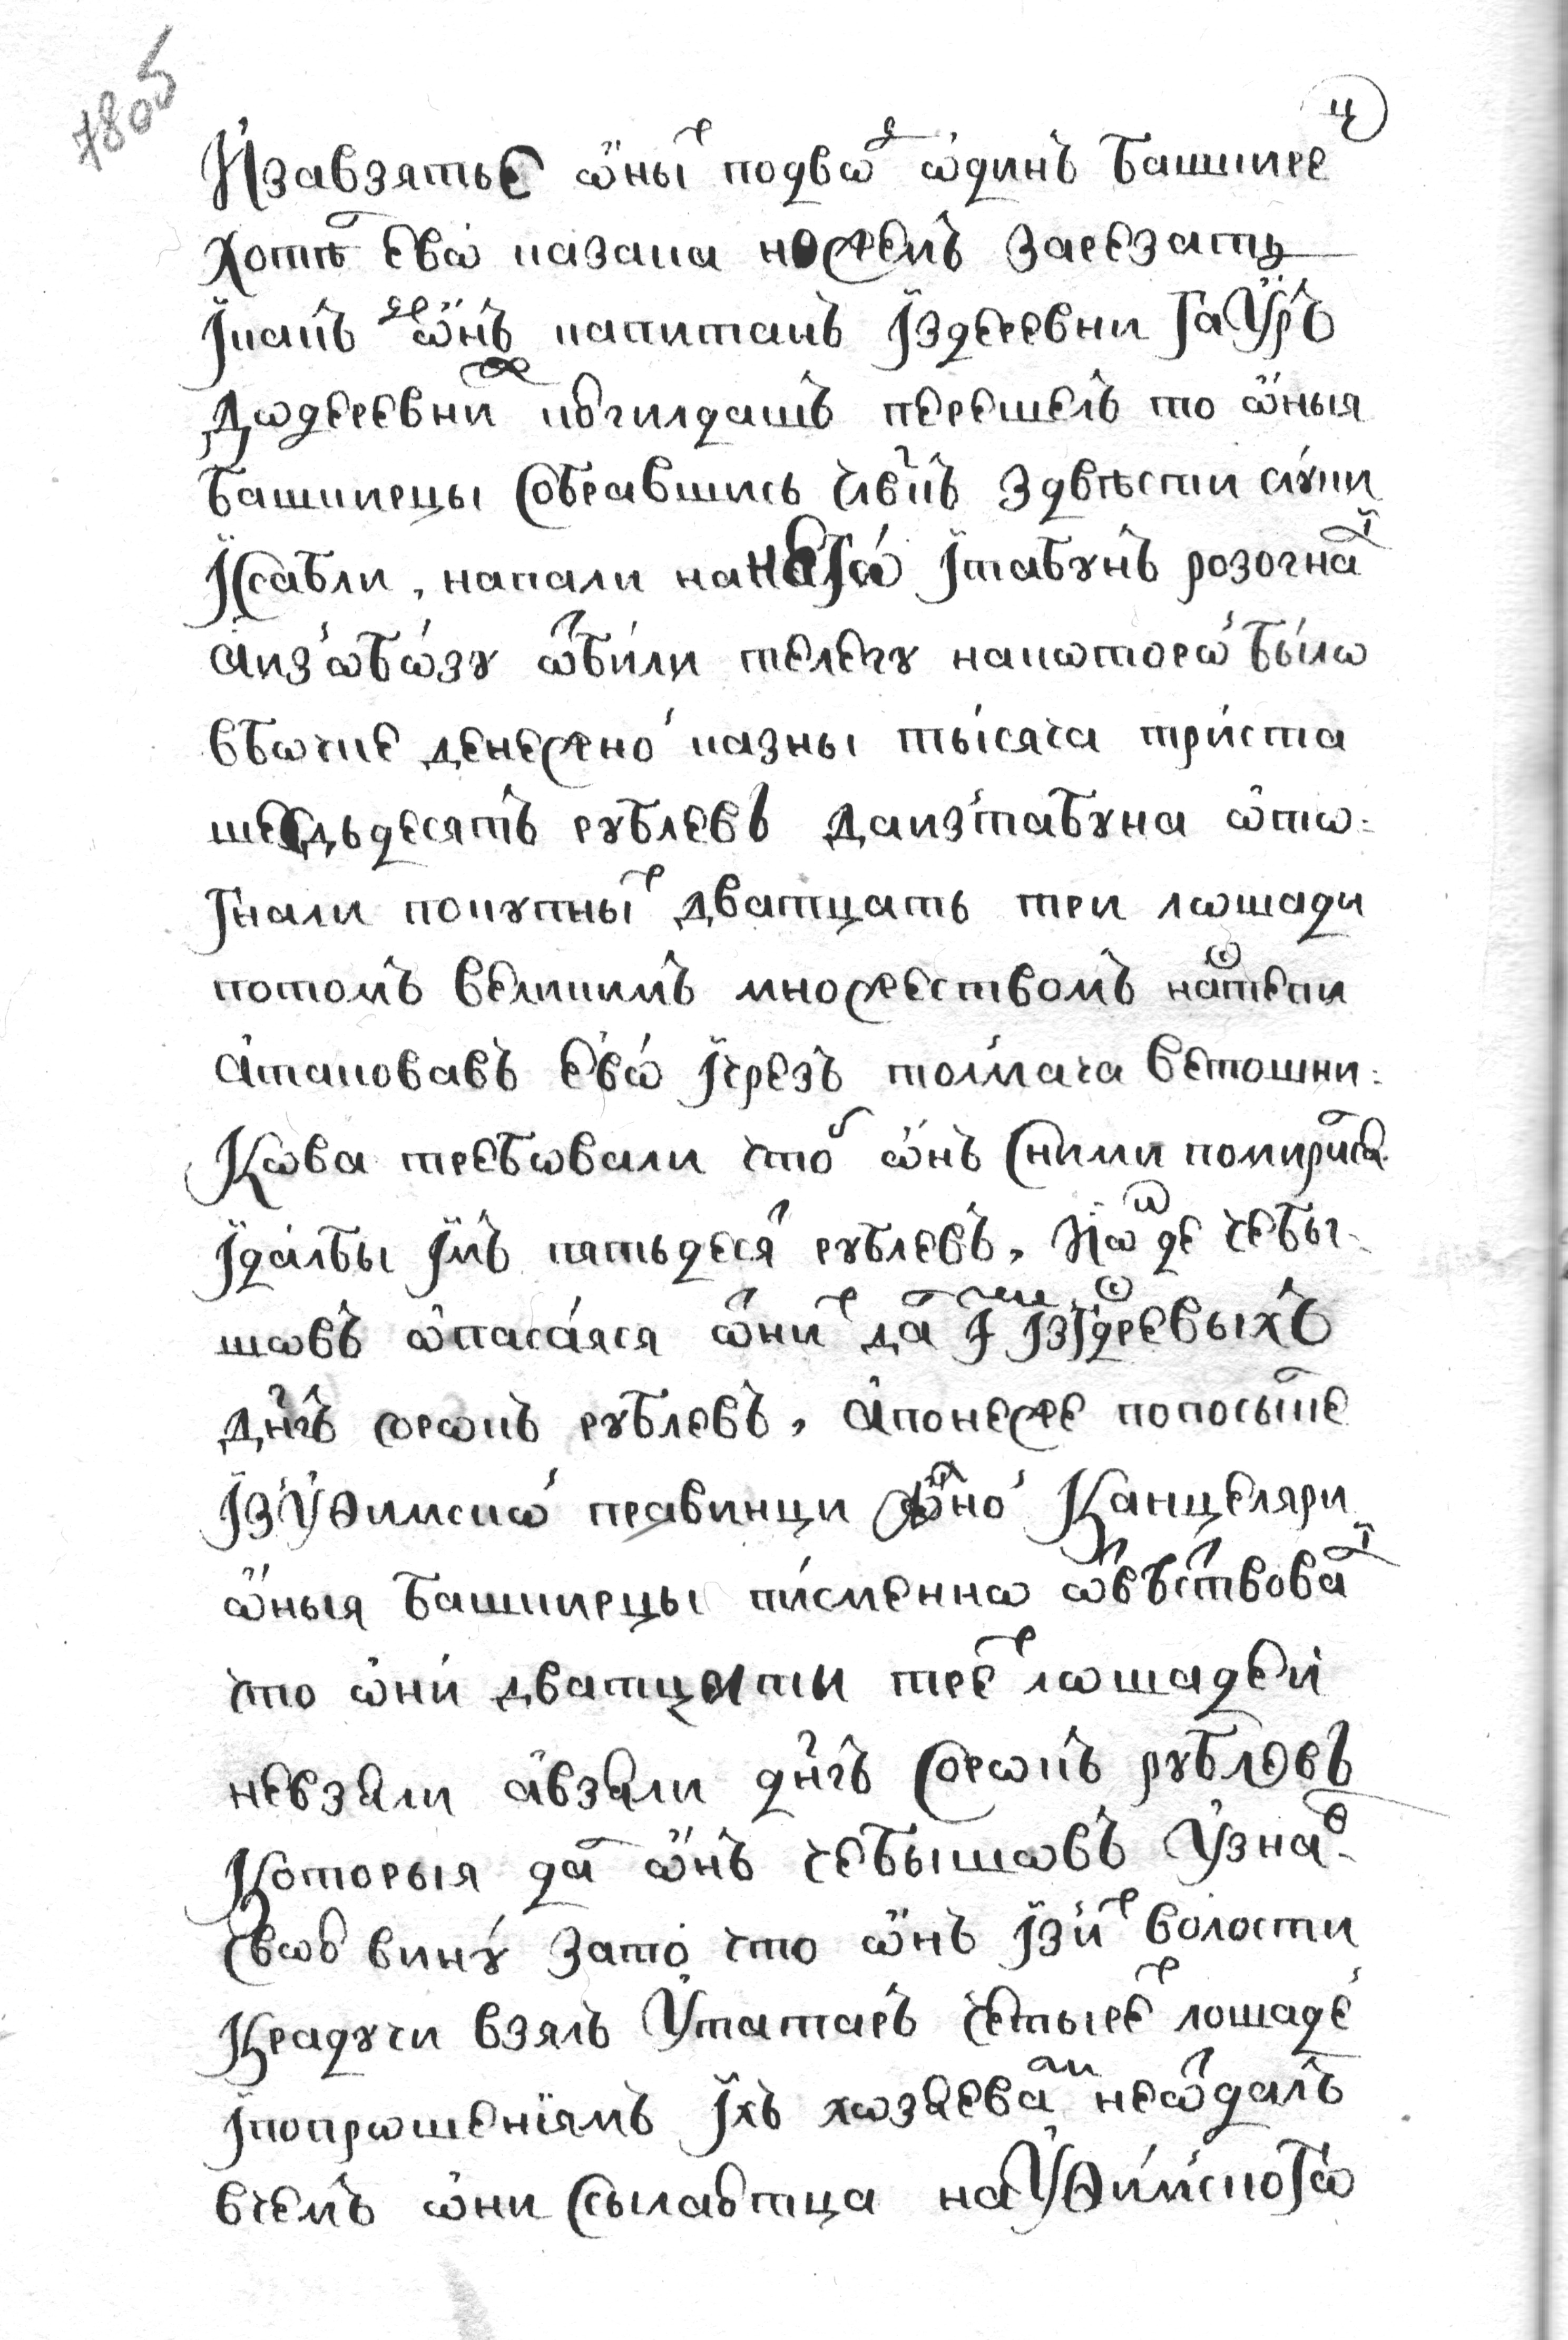 7805
ц
И завзятье ѿных подвод ѡдинъ башкирец
хотѣл евѡ казака ножемъ зарезать
ї какъ де ѡнъ капитанъ їз деревни Гауръ
до деревни ж кючилдашъ перешелъ то ѡныя
башкирцы собравшись члвкъ з двѣсти с луки
ї сабли, напали на него ї табунъ розогнат
а из ѡбозу ѿбили телегу на которо было
в бочке денежно казны тысяча триста
шездьдесятъ рублевъ да из табуна ѿто-
гнали покупных дватцать три лошади
потомъ великимъ множеством на степи
атаковавъ евѡ ї чрез толмача Ветошни-
кова требовали чтоб ѡнъ с ними помирился
ї дал бы їмъ пятьдесят рублевъ, и ѡной де Чебы-
шовъ ѡпасаяся ѿ них дал ї їздоревых
днгъ сорокъ рублевъ, а понеже по посылке
їз Уѳимско правинци ално Канцеляри
ѡныя башкирцы писменно ѿвѣтствовали
что ѡни дватцети трех лошадей
не взяли а взяли днгъ сорокъ рублевъ
которыя дал ѡнъ Чебышовъ узнав
свою вину за то что ѡнъ їз их волости
крадучи взялъ у татаръ четырех лошаде
ї по прошениямъ їхъ хозяевам не ѿдалъ
в чемъ ѡни ссылаютца на Уѳимского